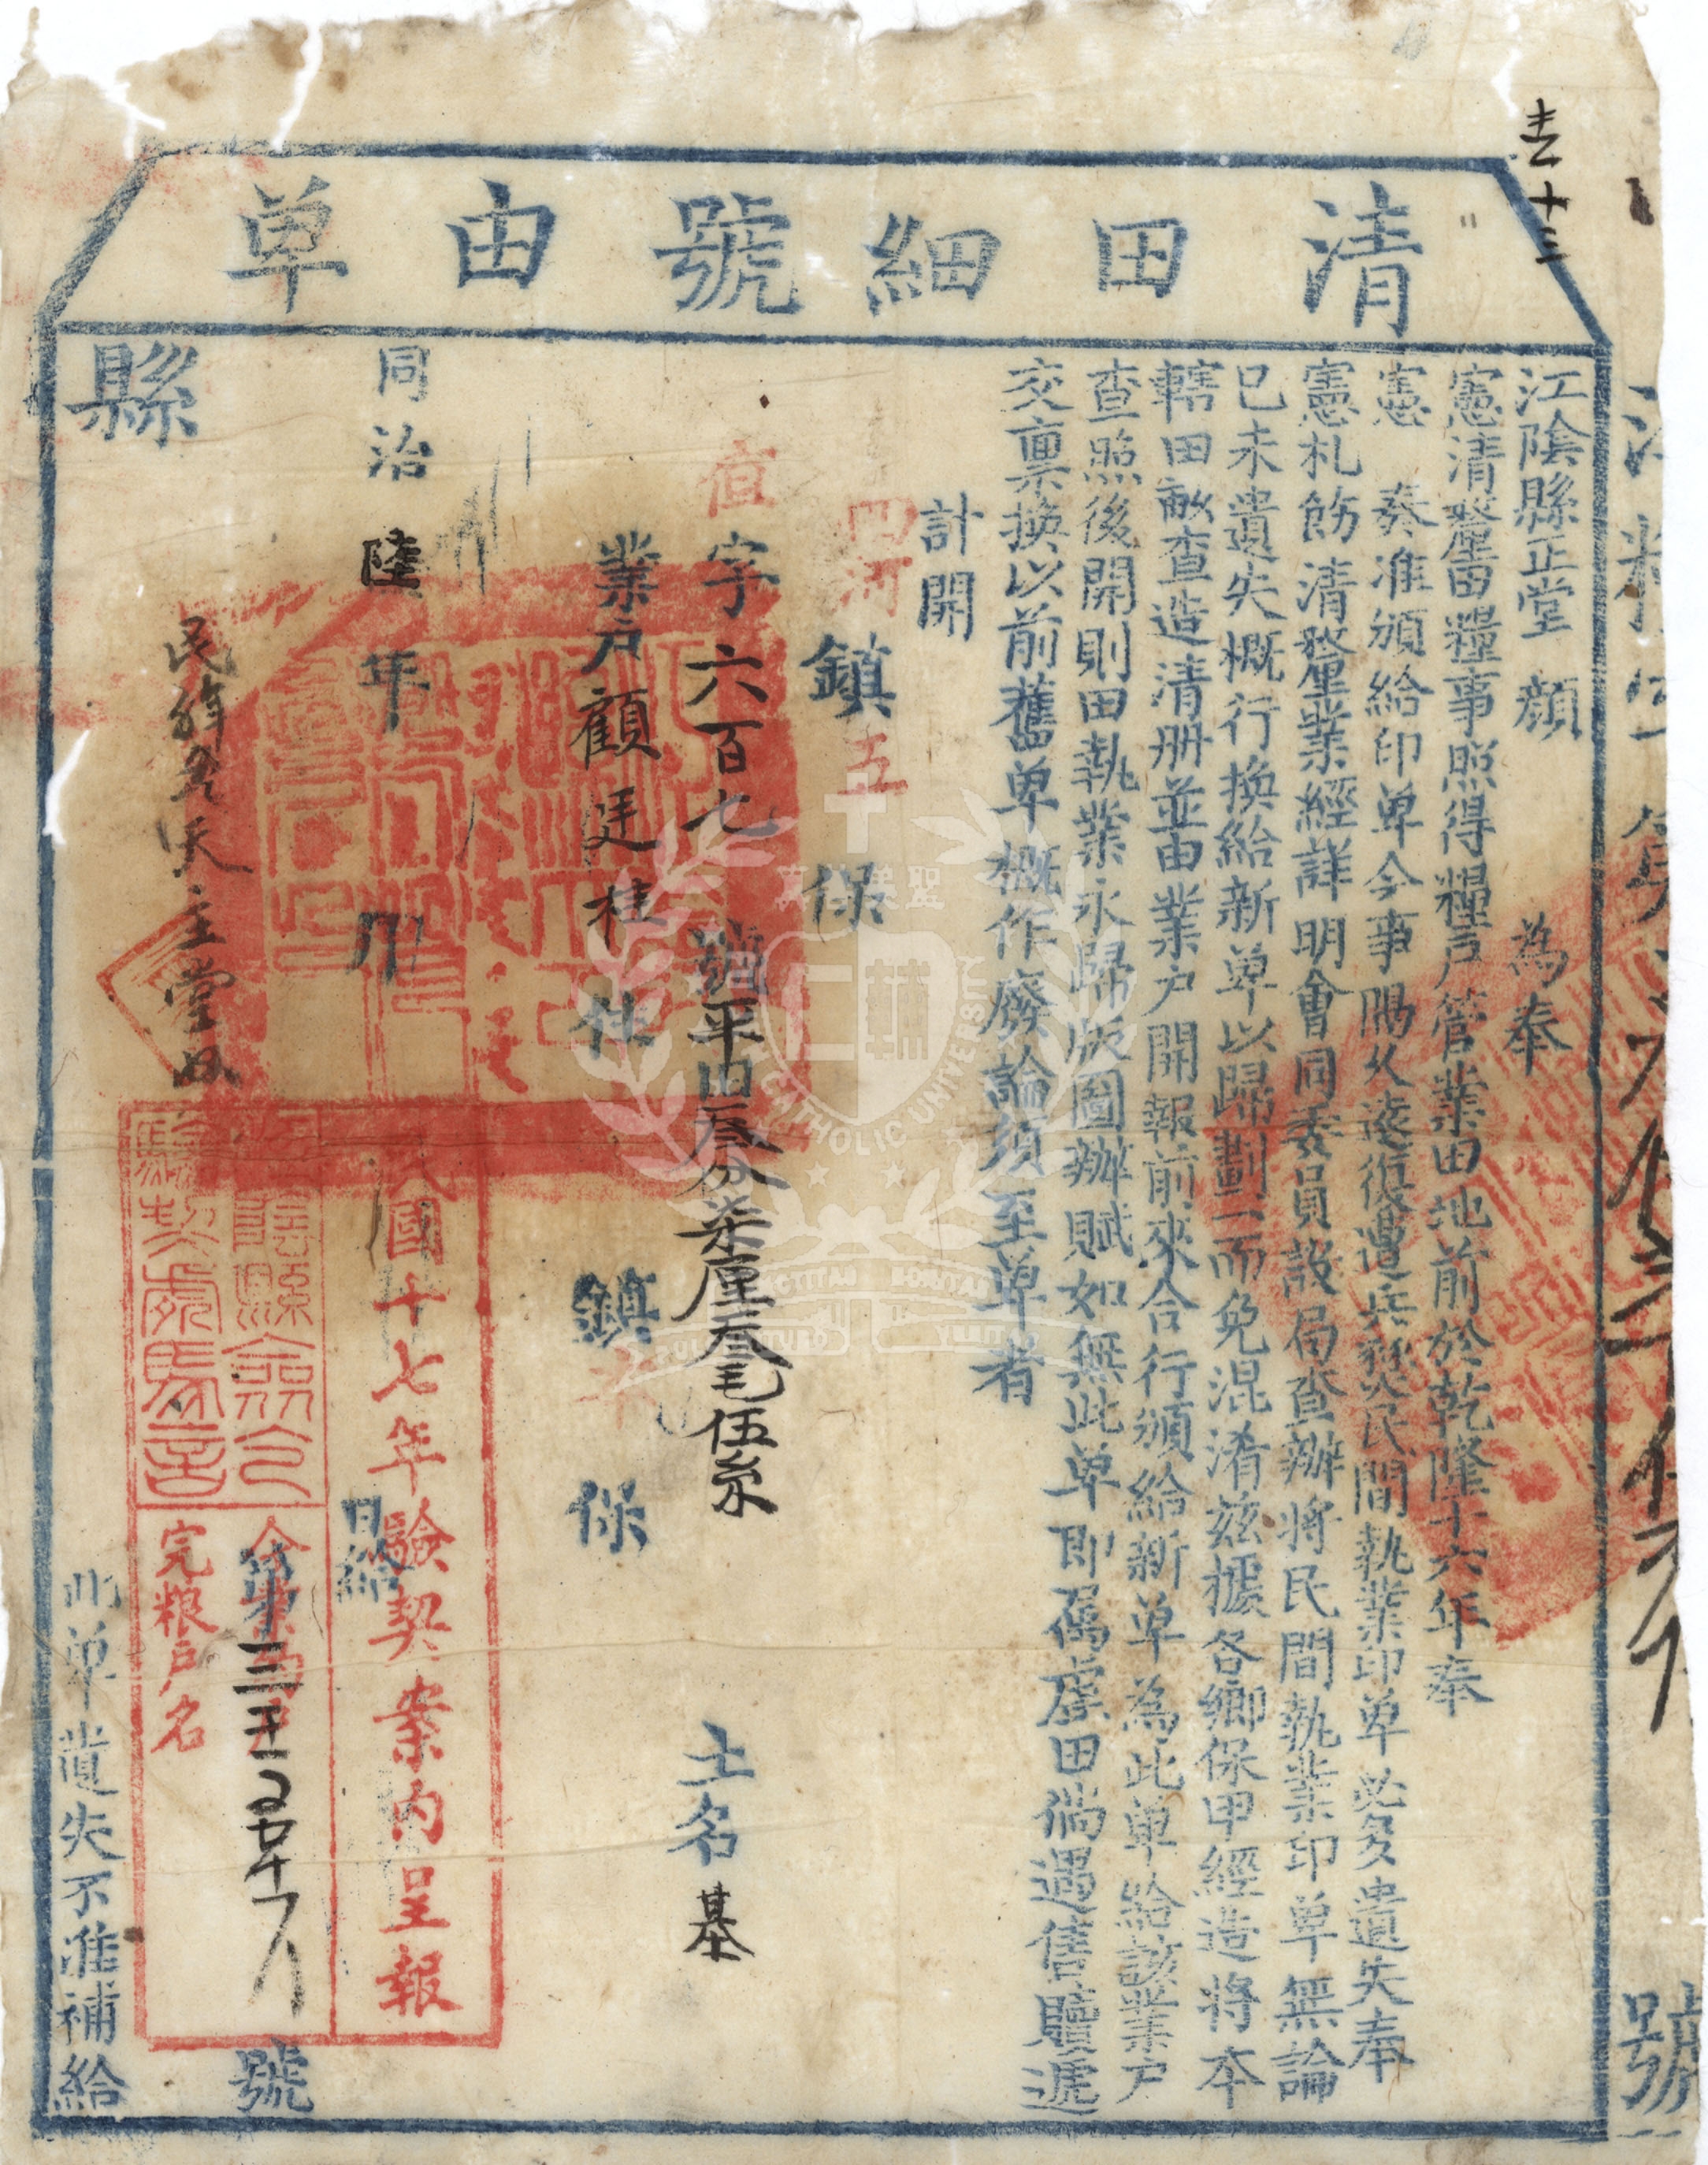 清田細號由單
江陰縣正堂顏 為奉
憲清釐田糧事照得糧戶管業田地前於乾隆十六年奉
憲 奏准頒給印單今事隔久遠復遭兵燹民間執業印單必多遺失奉
憲札飭清釐業經詳明會同委員設局查辦將民間執業印單無論
已未遺失概行換給新單以歸劃一而免混淆茲據各鄉保甲經造將本
轄田畝查造清册並由業戶開報前來合行頒給新單為此單給該業戶
查照後開則田執業永歸版圖辦賦如無此單即屬虛田倘遇售贖遞
交稟換以前舊單概作廢論須至單者
計開
四河鎮五保
字六百七 號平田叁分柒厘叁毛伍糸 土名基
業戶顧廷桂住 鎮 保
同治陸年 月 日給
民國十七年驗契案內呈報
天主堂
江陰縣
完粮戶名
第 號
縣
此單遺失不准補給
十三
號
聖
CATHOLIC UNIVERSITY